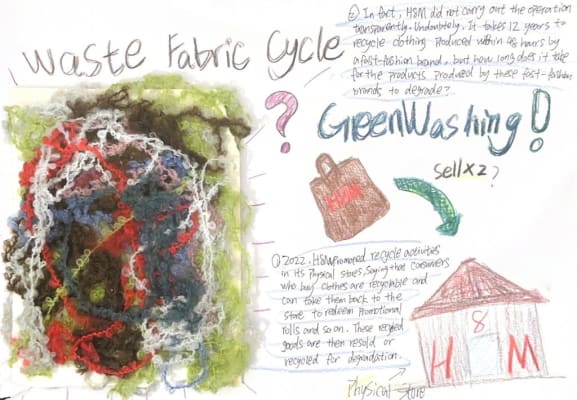 Waste Fabric Cycle
② In fact, H&M did not carry out the operation
transparently. Undoubtely, It takes 12 years to
recycle clothing produced within 48 hours by
a fast-fashion brand, but how long does it take
for the products produced by these fast-fashion
brands to degrade?
?
GreenWashing!
sell×2?
H&M
① 2022, H&M promoted recycle activities
in its physical stores, saying that consumers
who buy clothes are recyclable and
can take them back to the
store to redeem promotional
rolls and so on. These recycled
goods are then resold or
recycled for degradation.
Physical Store
H & M